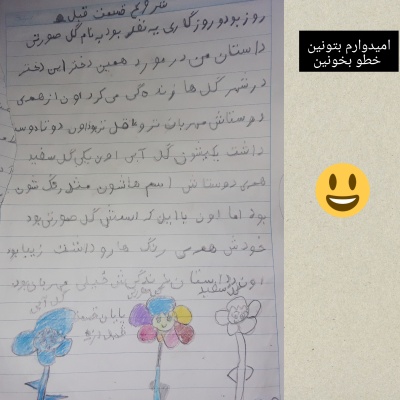 شروع قسمت قبل
روز بود و روز گاری یه نفر بود به نام گل صورتی
داستان من در مورد همین دختر این دختر
در شهر گل ها زنده گی می کرد اون از همه ی
دوستاش مهربان تر و عاقل تر بود اون دوتا دوست
داشت یکیشون گل آبی اون یکی گل سفید
همه ی دوستاش اسم هاشون مثل رنگ شون
بود اما اون با این که اسمش گل صورتی بود
خودش همه ی رنگ ها رو داشت زیبا بود
اون در داستان زندگیش خیلی مهربان بود
گل سفید
گل آبی
پایان قسمت
امیدوارم بتونین
خطو بخونین